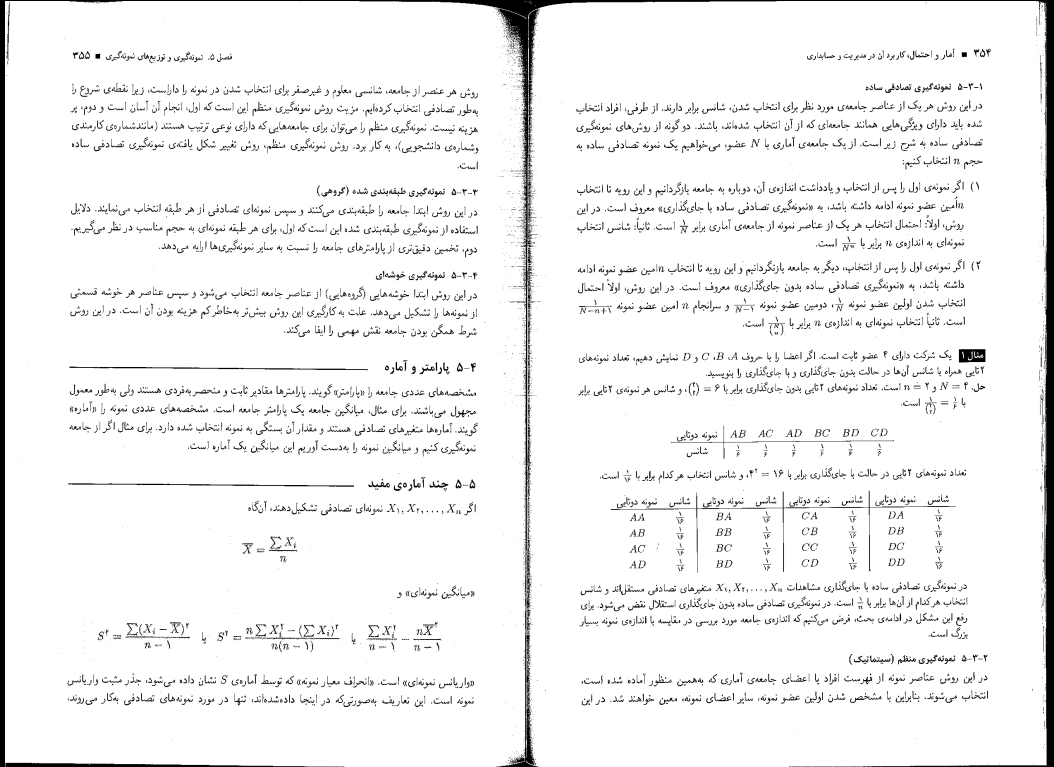 ۳۵۴ ■ آمار و احتمال، کاربرد آن در مدیریت و حسابداری
۵-۳-۱ نمونه‌گیری تصادفی ساده
در این روش هر یک از عناصر جامعه‌ی مورد نظر برای انتخاب شدن، شانس برابر دارند. از طرفی، افراد انتخاب
شده باید دارای ویژگی‌هایی همانند جامعه‌ای که از آن انتخاب شده‌اند، باشند. دو گونه از روش‌های نمونه‌گیری
تصادفی ساده به شرح زیر است. از یک جامعه‌ی آماری با N عضو، می‌خواهیم یک نمونه تصادفی ساده به
حجم n انتخاب کنیم:
۱) اگر نمونه‌ی اول را پس از انتخاب و یادداشت اندازه‌ی آن، دوباره به جامعه بازگردانیم و این رویه تا انتخاب
nاُمین عضو نمونه ادامه داشته باشد، به «نمونه‌گیری تصادفی ساده با جای‌گذاری» معروف است. در این
روش، اولاً: احتمال انتخاب هر یک از عناصر نمونه از جامعه‌ی آماری برابر ۱/N است. ثانیاً: شانس انتخاب
نمونه‌ای به اندازه‌ی n برابر با ۱/Nⁿ است.
۲) اگر نمونه‌ی اول را پس از انتخاب، دیگر به جامعه بازنگردانیم و این رویه تا انتخاب nامین عضو نمونه ادامه
داشته باشد، به «نمونه‌گیری تصادفی ساده بدون جای‌گذاری» معروف است. در این روش، اولاً احتمال
انتخاب شدن اولین عضو نمونه ۱/N، دومین عضو نمونه ۱/(N−۱) و سرانجام n امین عضو نمونه ۱/(N−n+۱)
است. ثانیاً انتخاب نمونه‌ای به اندازه‌ی n برابر با ۱/(N n) است.
مثال ۱ یک شرکت دارای ۴ عضو ثابت است. اگر اعضا را با حروف A، B، C و D نمایش دهیم، تعداد نمونه‌های
۲تایی همراه با شانس آن‌ها در حالت بدون جای‌گذاری و با جای‌گذاری را بنویسید.
حل. N = ۴ و n = ۲ است. تعداد نمونه‌های ۲تایی بدون جای‌گذاری برابر با ۶ = (۴ ۲)، و شانس هر نمونه‌ی ۲تایی برابر
با ۱/۶ = ۱/(۴ ۲) است.
نمونه دوتایی AB AC AD BC BD CD
شانس ۱/۶ ۱/۶ ۱/۶ ۱/۶ ۱/۶ ۱/۶
تعداد نمونه‌های ۲تایی در حالت با جای‌گذاری برابر با ۱۶ = ۴²، و شانس انتخاب هر کدام برابر با ۱/۱۶ است.
نمونه دوتایی شانس نمونه دوتایی شانس نمونه دوتایی شانس نمونه دوتایی شانس
AA ۱/۱۶ BA ۱/۱۶ CA ۱/۱۶ DA ۱/۱۶
AB ۱/۱۶ BB ۱/۱۶ CB ۱/۱۶ DB ۱/۱۶
AC ۱/۱۶ BC ۱/۱۶ CC ۱/۱۶ DC ۱/۱۶
AD ۱/۱۶ BD ۱/۱۶ CD ۱/۱۶ DD ۱/۱۶
در نمونه‌گیری تصادفی ساده با جای‌گذاری مشاهدات X₁, X₂, . . . , Xₙ متغیرهای تصادفی مستقل‌اند و شانس
انتخاب هر کدام از آن‌ها برابر با ۱/n است. در نمونه‌گیری تصادفی ساده بدون جای‌گذاری استقلال نقض می‌شود. برای
رفع این مشکل در ادامه‌ی بحث، فرض می‌کنیم که اندازه‌ی جامعه مورد بررسی در مقایسه با اندازه‌ی نمونه بسیار
بزرگ است.
۵-۳-۲ نمونه‌گیری منظم (سیتماتیک)
در این روش عناصر نمونه از فهرست افراد یا اعضای جامعه‌ی آماری که به‌همین منظور آماده شده است،
انتخاب می‌شوند. بنابراین با مشخص شدن اولین عضو نمونه، سایر اعضای نمونه، معین خواهند شد. در این
فصل ۵. نمونه‌گیری و توزیع‌های نمونه‌گیری ■ ۳۵۵
روش هر عنصر از جامعه، شانسی معلوم و غیرصفر برای انتخاب شدن در نمونه را داراست، زیرا نقطه‌ی شروع را
به‌طور تصادفی انتخاب کرده‌ایم. مزیت روش نمونه‌گیری منظم این است که اول، انجام آن آسان است و دوم، پر
هزینه نیست. نمونه‌گیری منظم را می‌توان برای جامعه‌هایی که دارای نوعی ترتیب هستند (مانندشماره‌ی کارمندی
وشماره‌ی دانشجویی)، به کار برد. روش نمونه‌گیری منظم، روش تغییر شکل یافته‌ی نمونه‌گیری تصادفی ساده
است.
۵-۳-۳ نمونه‌گیری طبقه‌بندی شده (گروهی)
در این روش ابتدا جامعه را طبقه‌بندی می‌کنند و سپس نمونه‌ای تصادفی از هر طبقه انتخاب می‌نمایند. دلایل
استفاده از نمونه‌گیری طبقه‌بندی شده این است که اول، برای هر طبقه نمونه‌ای به حجم مناسب در نظر می‌گیریم.
دوم، تخمین دقیق‌تری از پارامترهای جامعه را نسبت به سایر نمونه‌گیری‌ها ارایه می‌دهد.
۵-۳-۴ نمونه‌گیری خوشه‌ای
در این روش ابتدا خوشه‌هایی (گروه‌هایی) از عناصر جامعه انتخاب می‌شود و سپس عناصر هر خوشه قسمتی
از نمونه‌ها را تشکیل می‌دهد. علت به کارگیری این روش بیش‌تر به‌خاطر کم هزینه بودن آن است. در این روش
شرط همگن بودن جامعه نقش مهمی را ایفا می‌کند.
۵-۴ پارامتر و آماره
مشخصه‌های عددی جامعه را «پارامتر» گویند. پارامترها مقادیر ثابت و منحصربه‌فردی هستند ولی به‌طور معمول
مجهول می‌باشند. برای مثال، میانگین جامعه یک پارامتر جامعه است. مشخصه‌های عددی نمونه را «آماره»
گویند. آماره‌ها متغیرهای تصادفی هستند و مقدار آن بستگی به نمونه انتخاب شده دارد. برای مثال اگر از جامعه
نمونه‌گیری کنیم و میانگین نمونه را به‌دست آوریم این میانگین یک آماره است.
۵-۵ چند آماره‌ی مفید
اگر X₁, X₂, . . . , Xₙ نمونه‌ای تصادفی تشکیل‌دهند، آن‌گاه
X̅ = ∑Xᵢ / n
«میانگین نمونه‌ای» و
S² = ∑(Xᵢ − X̅)² / (n − ۱) یا S² = (n∑Xᵢ² − (∑Xᵢ)²) / n(n − ۱) یا ∑Xᵢ² / (n − ۱) − nX̅² / (n − ۱)
«واریانس نمونه‌ای» است. «انحراف معیار نمونه» که توسط آماره‌ی S نشان داده می‌شود، جذر مثبت واریانس
نمونه است. این تعاریف به‌صورتی‌که در اینجا داده‌شده‌اند، تنها در مورد نمونه‌های تصادفی به‌کار می‌روند،